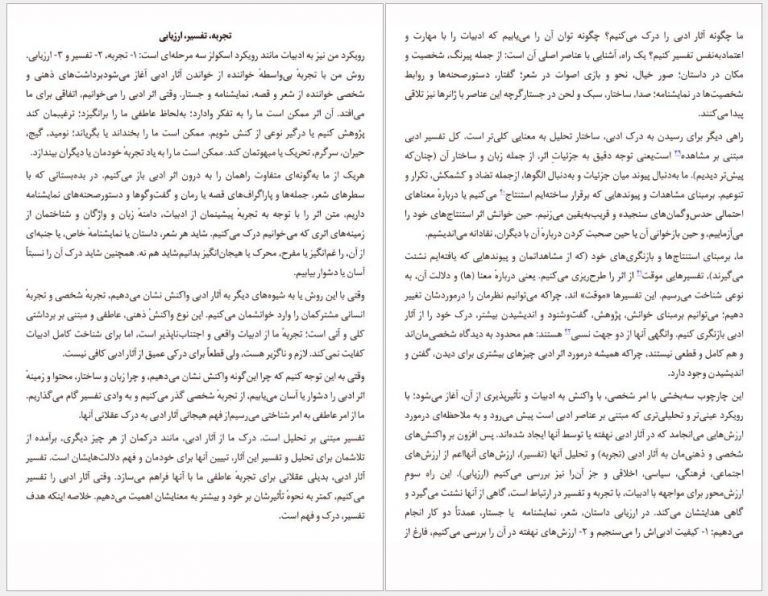 تجربه، تفسیر، ارزیابی
رویکرد من نیز به ادبیات مانند رویکرد اسکولز سه مرحله‌ای است: ۱- تجربه، ۲- تفسیر و ۳- ارزیابی.
روش من با تجربهٔ بی‌واسطهٔ خواننده از خواندن آثار ادبی آغاز می‌شود؛برداشت‌های ذهنی و
شخصی خواننده از شعر و قصه، نمایشنامه و جستار. وقتی اثر ادبی را می‌خوانیم، اتفاقی برای ما
می‌افتد. آن اثر ممکن است ما را به تفکر وادارد؛ به‌لحاظ عاطفی ما را برانگیزد؛ ترغیبمان کند
پژوهش کنیم یا درگیر نوعی از کنش شویم. ممکن است ما را بخنداند یا بگریاند؛ نومید، گیج،
حیران، سرگرم، تحریک یا مبهوتمان کند. ممکن است ما را به یاد تجربهٔ خودمان یا دیگران بیندازد.
هریک از ما به‌گونه‌ای متفاوت راهمان را به درون اثر ادبی باز می‌کنیم. در بده‌بستانی که با
سطرهای شعر، جمله‌ها و پاراگراف‌های قصه یا رمان و گفت‌وگوها و دستورصحنه‌های نمایشنامه
داریم، متن اثر را با توجه به تجربهٔ پیشینمان از ادبیات، دامنهٔ زبان و واژگان و شناختمان از
زمینه‌های اثری که می‌خوانیم درک می‌کنیم. شاید هر شعر، داستان یا نمایشنامهٔ خاص، یا جنبه‌ای
از آن، را غم‌انگیز یا مفرح، محرک یا هیجان‌انگیز بدانیم‌شاید هم نه. همچنین شاید درک آن را نسبتاً
آسان یا دشوار بیابیم.
وقتی با این روش یا به شیوه‌های دیگر به آثار ادبی واکنش نشان می‌دهیم، تجربهٔ شخصی و تجربهٔ
انسانی مشترکمان را وارد خوانشمان می‌کنیم. این نوع واکنش ذهنی، عاطفی و مبتنی بر برداشتی
کلی و آنی است؛ تجربهٔ ما از ادبیات واقعی و اجتناب‌ناپذیر است، اما برای شناخت کامل ادبیات
کفایت نمی‌کند. لازم و ناگزیر هست، ولی قطعاً برای درکی عمیق از آثار ادبی کافی نیست.
وقتی به این توجه کنیم که چرا این‌گونه واکنش نشان می‌دهیم، و چرا زبان و ساختار، محتوا و زمینهٔ
اثر ادبی را دشوار یا آسان می‌یابیم، از تجربهٔ شخصی گذر می‌کنیم و به وادی تفسیر گام می‌گذاریم.
ما از امر عاطفی به امر شناختی می‌رسیم‌از فهم هیجانی آثار ادبی به درک عقلانی آنها.
تفسیر مبتنی بر تحلیل است. درک ما از آثار ادبی، مانند درکمان از هر چیز دیگری، برآمده از
تلاشمان برای تحلیل و تفسیر این آثار، تبیین آنها برای خودمان و فهم دلالت‌هایشان است. تفسیر
آثار ادبی، بدیلی عقلانی برای تجربهٔ عاطفی ما با آنها فراهم می‌سازد. وقتی آثار ادبی را تفسیر
می‌کنیم، کمتر به نحوهٔ تأثیرشان بر خود و بیشتر به معنایشان اهمیت می‌دهیم. خلاصه اینکه هدف
تفسیر، درک و فهم است.
ما چگونه آثار ادبی را درک می‌کنیم؟ چگونه توان آن را می‌یابیم که ادبیات را با مهارت و
اعتمادبه‌نفس تفسیر کنیم؟ یک راه، آشنایی با عناصر اصلی آن است: از جمله پیرنگ، شخصیت و
مکان در داستان؛ صور خیال، نحو و بازی اصوات در شعر؛ گفتار، دستورصحنه‌ها و روابط
شخصیت‌ها در نمایشنامه؛ صدا، ساختار، سبک و لحن در جستارگرچه این عناصر با ژانرها نیز تلاقی
پیدا می‌کنند.
راهی دیگر برای رسیدن به درک ادبی، ساختار تحلیل به معنایی کلی‌تر است. کل تفسیر ادبی
مبتنی بر مشاهده۳۹ است‌یعنی توجه دقیق به جزئیاتِ اثر، از جمله زبان و ساختار آن (چنان‌که
پیش‌تر دیدیم). ما به‌دنبال پیوند میان جزئیات و به‌دنبال الگوها، ازجمله تضاد و کشمکش، تکرار و
تنوعیم. برمبنای مشاهدات و پیوندهایی که برقرار ساخته‌ایم استنتاج۴۰ می‌کنیم یا دربارهٔ معناهای
احتمالی حدس‌وگمان‌های سنجیده و قریب‌به‌یقین می‌زنیم. حین خوانش اثر استنتاج‌های خود را
می‌آزماییم، و حین بازخوانی آن یا حین صحبت کردن دربارهٔ آن با دیگران، نقادانه می‌اندیشیم.
ما، برمبنای استنتاج‌ها و بازنگری‌های خود (که از مشاهداتمان و پیوندهایی که یافته‌ایم نشئت
می‌گیرند)، تفسیرهایی موقت۴۱ از اثر را طرح‌ریزی می‌کنیم، یعنی دربارهٔ معنا (ها) و دلالت آن، به
نوعی شناخت می‌رسیم. این تفسیرها «موقت» اند، چراکه می‌توانیم نظرمان را درموردشان تغییر
دهیم؛ می‌توانیم برمبنای خوانش، پژوهش، گفت‌وشنود و اندیشیدن بیشتر، درک خود را از آثار
ادبی بازنگری کنیم. وانگهی آنها از دو جهت نسبی۴۲ هستند: هم محدود به دیدگاه شخصی‌مان‌اند
و هم کامل و قطعی نیستند، چراکه همیشه درمورد اثر ادبی چیزهای بیشتری برای دیدن، گفتن و
اندیشیدن وجود دارد.
این چارچوب سه‌بخشی با امر شخصی، با واکنش به ادبیات و تأثیرپذیری از آن، آغاز می‌شود؛ با
رویکرد عینی‌تر و تحلیلی‌تری که مبتنی بر عناصر ادبی است پیش می‌رود و به ملاحظه‌ای درمورد
ارزش‌هایی می‌انجامد که در آثار ادبی نهفته یا توسط آنها ایجاد شده‌اند. پس افزون بر واکنش‌های
شخصی و ذهنی‌مان به آثار ادبی (تجربه) و تحلیل آنها (تفسیر)، ارزش‌های آنهااعم از ارزش‌های
اجتماعی، فرهنگی، سیاسی، اخلاقی و جز آن‌را نیز بررسی می‌کنیم (ارزیابی). این راه سوم
ارزش‌محور برای مواجهه با ادبیات، با تجربه و تفسیر در ارتباط است، گاهی از آنها نشئت می‌گیرد و
گاهی هدایتشان می‌کند. در ارزیابی داستان، شعر، نمایشنامه یا جستار، عمدتاً دو کار انجام
می‌دهیم: ۱- کیفیت ادبی‌اش را می‌سنجیم و ۲- ارزش‌های نهفته در آن را بررسی می‌کنیم، فارغ از